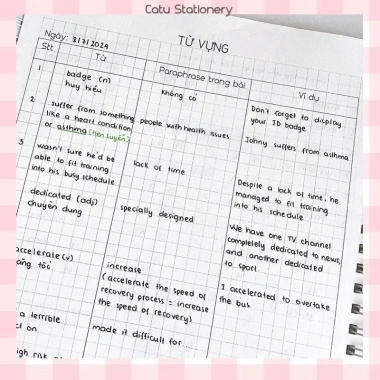 Catu Stationery
TỪ VỰNG
Ngày: 3/7/2024
Stt Từ Paraphrase trong bài Ví dụ
1 badge (n)
huy hiếu
không có
Don't forget to display
your ID badge
2 suffer from something
like a heart condition
or asthma (hen suyễn)
people with health issues
Johny suffers from asthma
3 wasn't sure he'd be
able to fit training
into his busy schedule
lack of time
Despite a lack of time, he
managed to fit training
into his schedule
dedicated (adj)
chuyên dung
specially designed
We have one TV channel
completely dedicated to news,
and another dedicated
to sport.
accelerate (v)
tăng tốc
increase
(accelerate the speed of
recovery process = increase
the speed of recovery)
I accelerated to overtake
the bus
a terrible
on
made it difficult for...
high risk